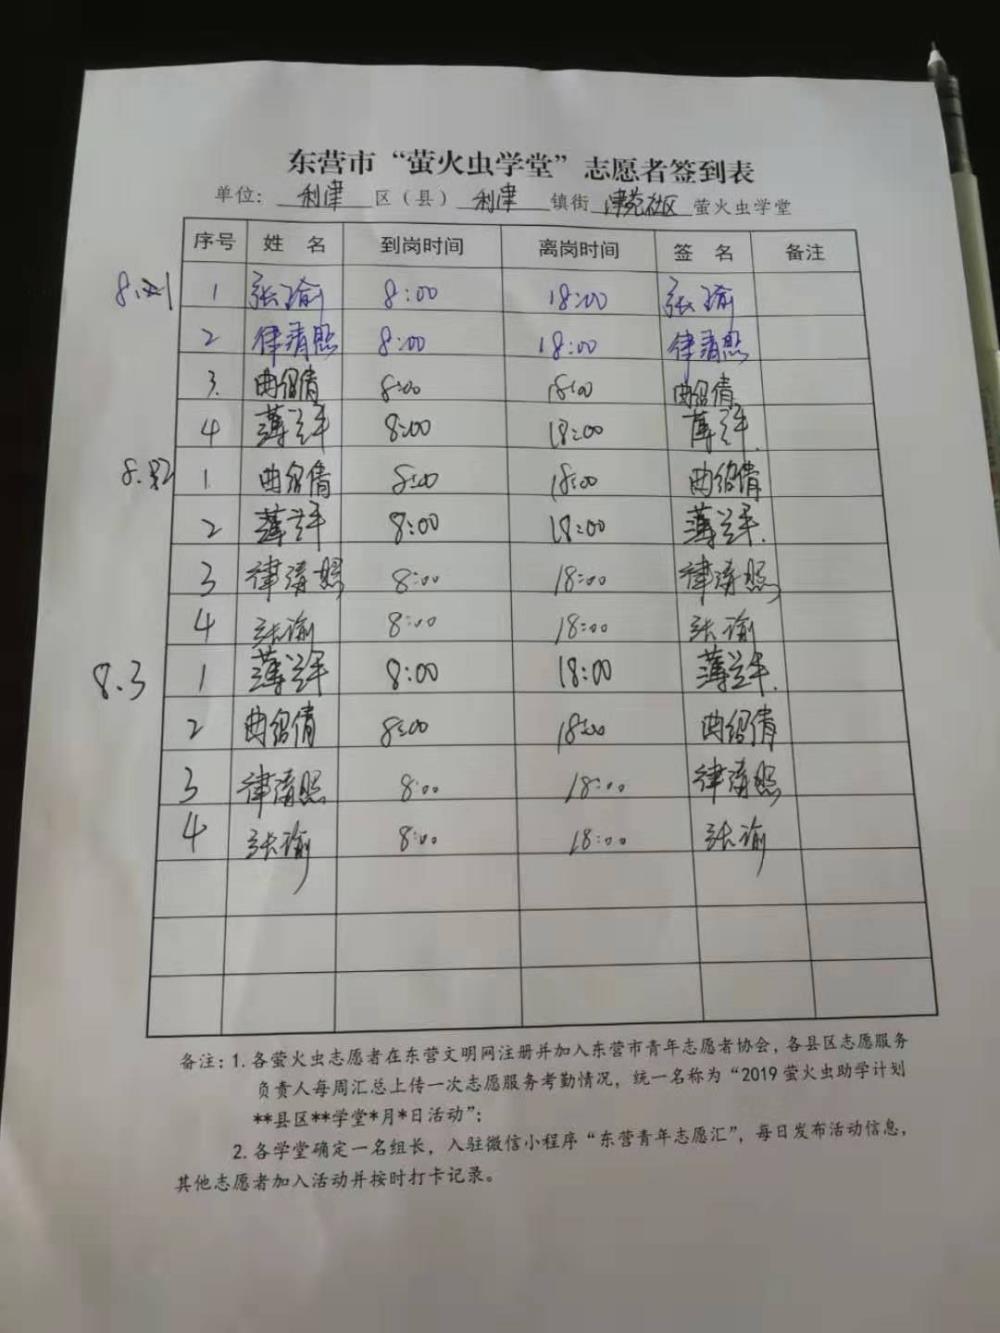 东营市“萤火虫学堂”志愿者签到表
单位：利津 区（县）利津 镇街 津苑社区 萤火虫学堂
序号 姓 名 到岗时间 离岗时间 签 名 备注
1 张瑜 8:00 18:00 张瑜
2 律清照 8:00 18:00 律清照
3. 曲绍倩 8:00 18:00 曲绍倩
4 薄兰平 8:00 18:00 薄兰平.
1 曲绍倩 8:00 18:00 曲绍倩
2 薄兰平 8:00 18:00 薄兰平.
3 律清照 8:00 18:00 律清照
4 张瑜 8:00 18:00 张瑜
8.3 1 薄兰平 8:00 18:00 薄兰平.
2 曲绍倩 8:00 18:00 曲绍倩
3 律清照 8:00 18:00 律清照
4 张瑜 8:00 18:00 张瑜
备注：1. 各萤火虫志愿者在东营文明网注册并加入东营市青年志愿者协会，各县区志愿服务
负责人每周汇总上传一次志愿服务考勤情况，统一名称为“2019 萤火虫助学计划
**县区**学堂*月*日活动”；
2. 各学堂确定一名组长，入驻微信小程序“东营青年志愿汇”，每日发布活动信息，
其他志愿者加入活动并按时打卡记录。